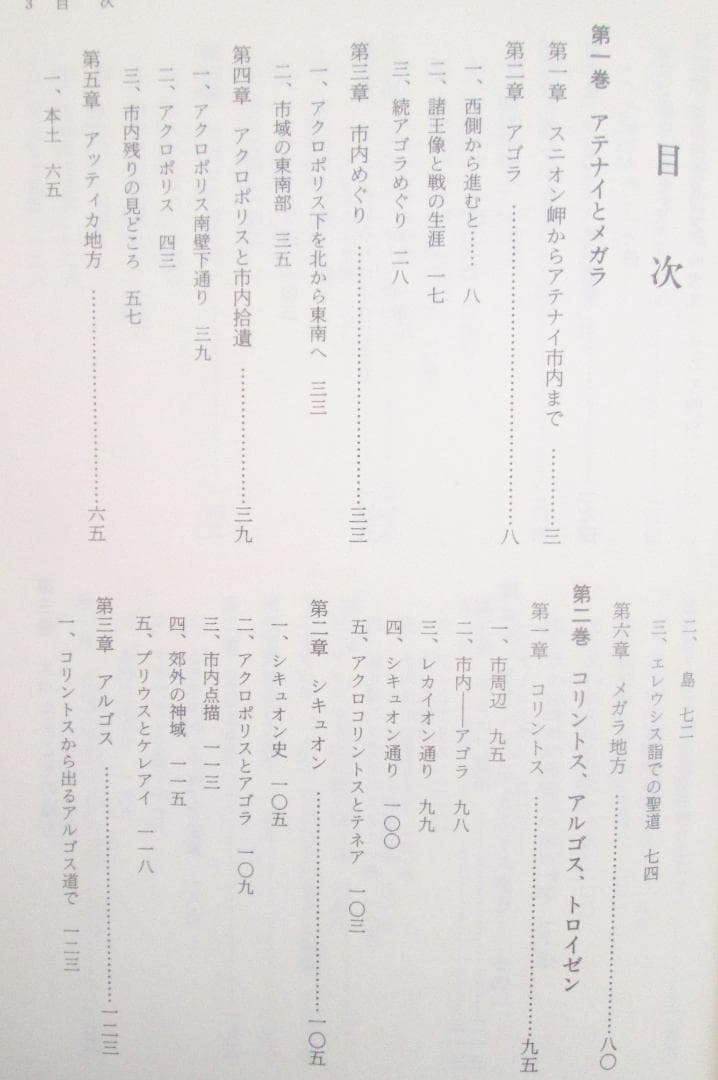 3 目 次
目 次
第一巻 アテナイとメガラ
第一章 スニオン岬からアテナイ市内まで …………三
第二章 アゴラ ……………………………………八
一、西側から進むと…… 八
二、諸王像と戦の生涯 一七
三、続アゴラめぐり 二八
第三章 市内めぐり ……………………………三三
一、アクロポリス下を北から東南へ 三三
二、市域の東南部 三五
第四章 アクロポリスと市内拾遺 ………………三九
一、アクロポリス南壁下通り 三九
二、アクロポリス 四三
三、市内残りの見どころ 五七
第五章 アッティカ地方 …………………………六五
一、本土 六五
二、島 七二
三、エレウシス詣での聖道 七四
第六章 メガラ地方 ……………………………八〇
第二巻 コリントス、アルゴス、トロイゼン
第一章 コリントス ……………………………九五
一、市周辺 九五
二、市内――アゴラ 九八
三、レカイオン通り 九九
四、シキュオン通り 一〇〇
五、アクロコリントスとテネア 一〇三
第二章 シキュオン ……………………………一〇五
一、シキュオン史 一〇五
二、アクロポリスとアゴラ 一〇九
三、市内点描 一一三
四、郊外の神域 一一五
五、プリウスとケレアイ 一一八
第三章 アルゴス ………………………………一二三
一、コリントスから出るアルゴス道で 一二三